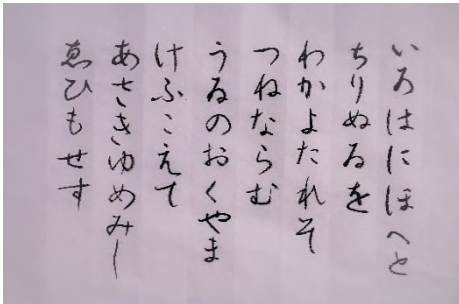 いろはにほへと
ちりぬるを
わかよたれそ
つねならむ
うゐのおくやま
けふこえて
あさきゆめみし
ゑひもせす